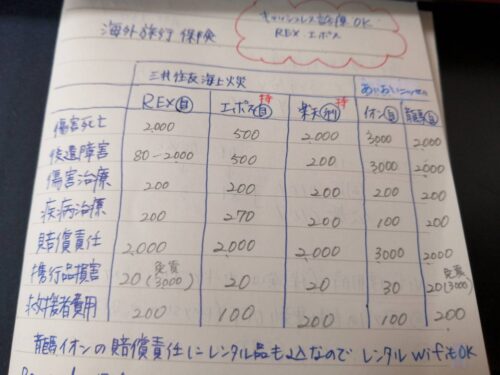 海外旅行保険
キャッシュレス診療OK
REX エポス
三井住友海上火災 あいおいニッセイ
REX 自 エポス 自 持 楽天 利 持 イオン 自 龍馬 自
傷害死亡 2,000 500 2,000 3,000 2,000
後遺障害 80-2000 500 200 3000 2000
傷害治療 200 200 200 200 200
疾病治療 200 270 200 100 200
賠償責任 2,000 2,000 2,000 3000 2000
携行品損害 20 (免責3000) 20 20 30 20 (免責3000)
救援者費用 200 100 200 100 200
龍馬イオンの賠償責任にレンタル品も込なので レンタルwifiもOK